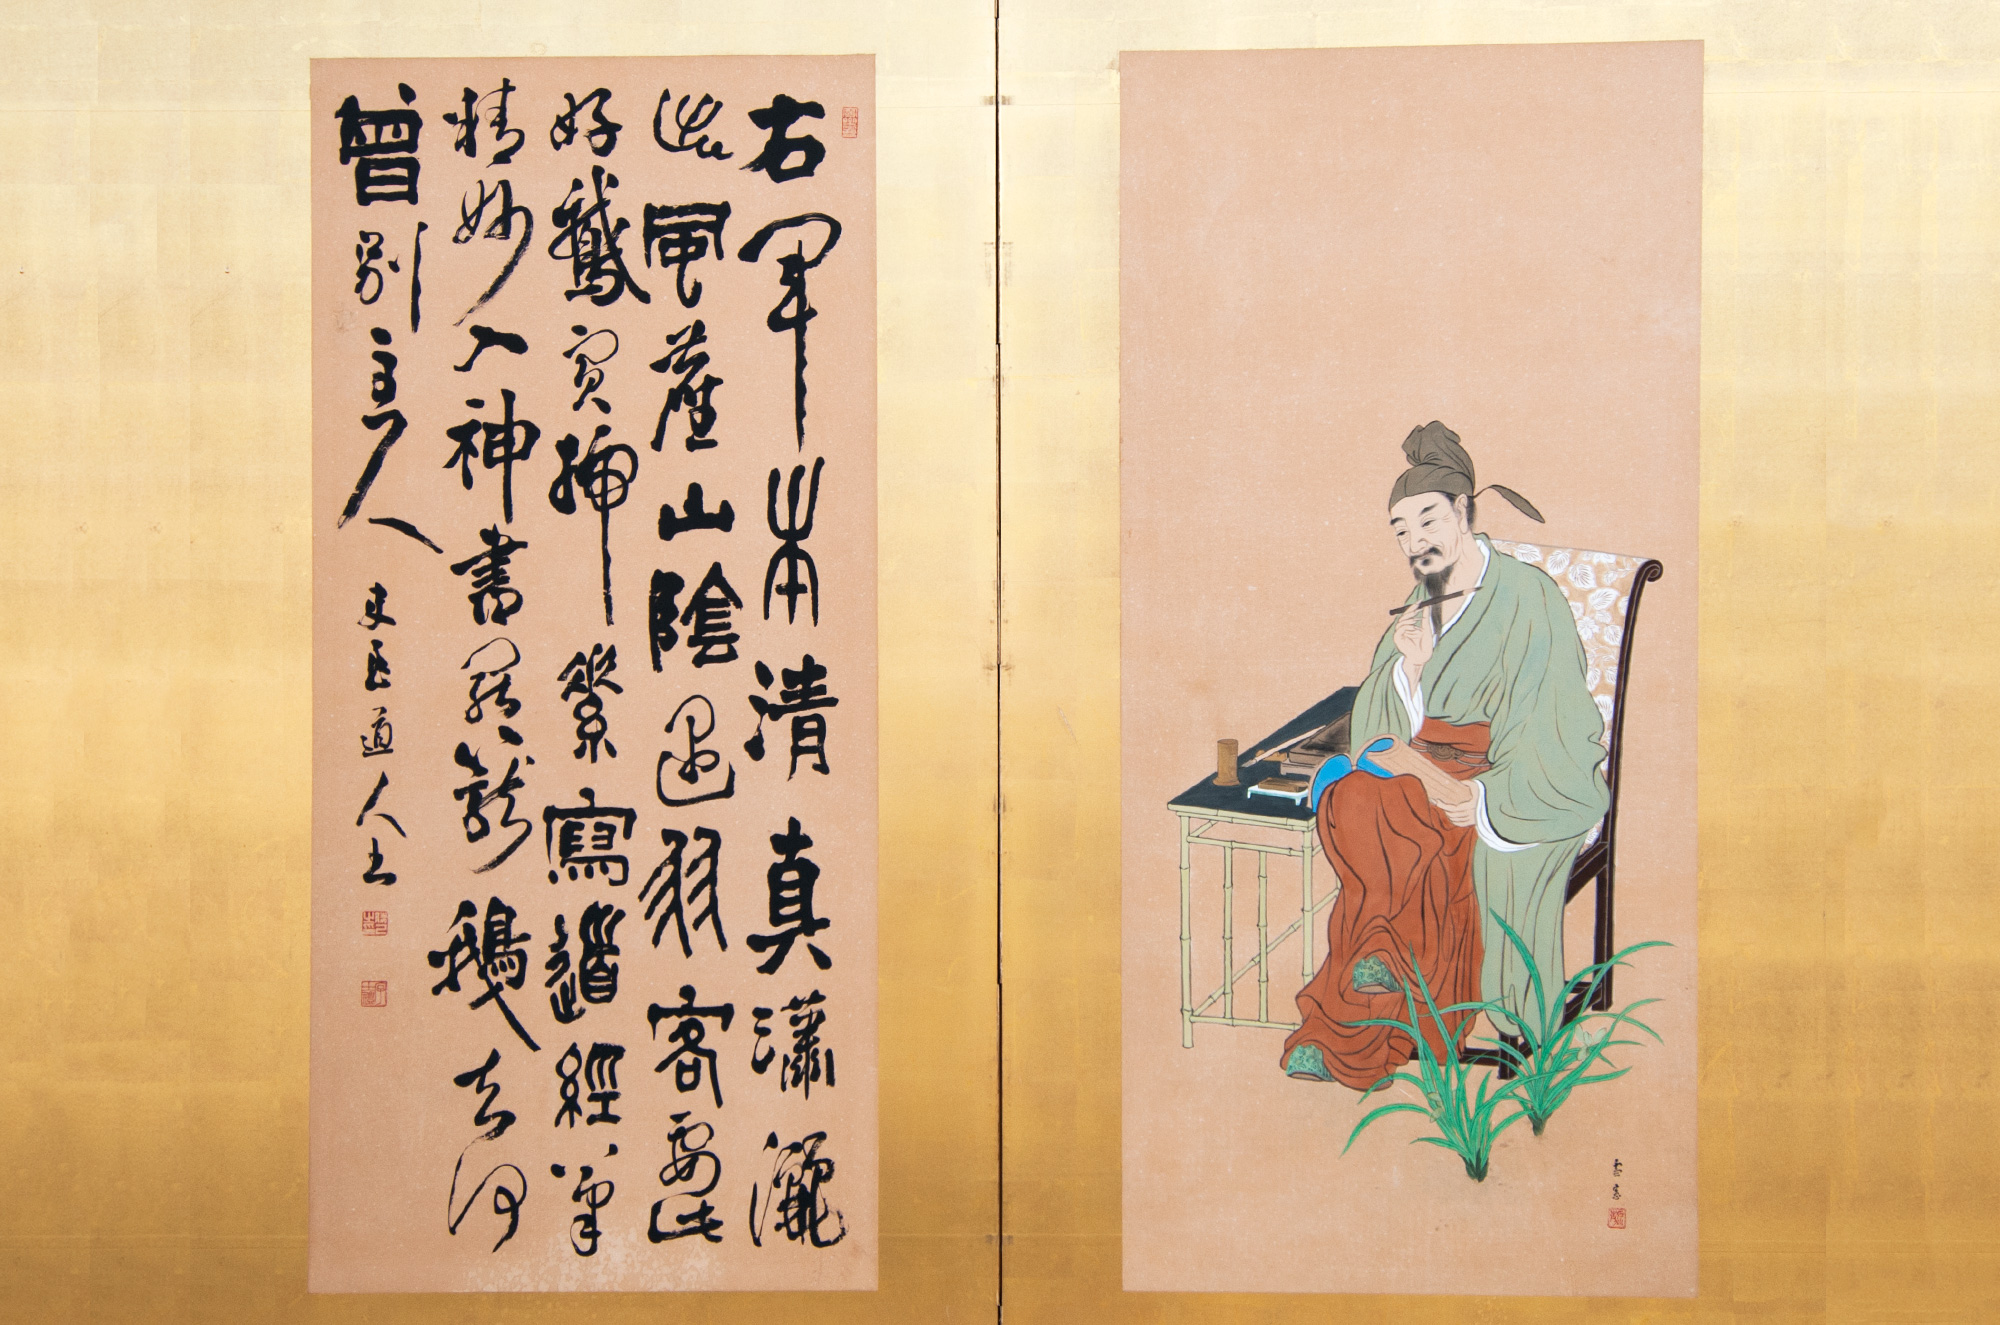 右軍本清真瀟灑
出風塵山陰遇羽客要此
好鵞賓掃素寫道經筆
精妙入神書罷籠鵝去何
曾別主人
道人書